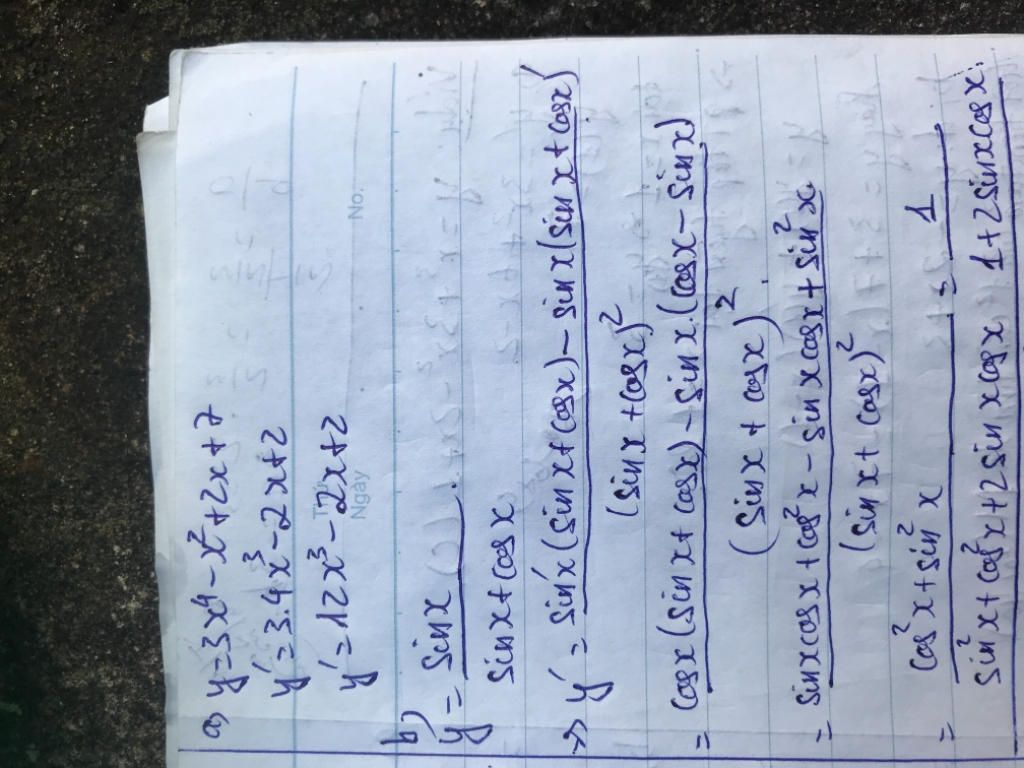 a) y = 3x⁴ - x² + 2x + 7
y' = 3.4x³ - 2x + 2
y' = 12x³ - 2x + 2
Ngày
No.
b)
y = sin x / (sin x + cos x)
=> y' = (sin'x (sin x + cos x) - sin x (sin x + cos x)') / (sin x + cos x)²
= (cos x (sin x + cos x) - sin x . (cos x - sin x)) / (sin x + cos x)²
= (sin x cos x + cos² x - sin x cos x + sin² x) / (sin x + cos x)²
= (cos² x + sin² x) / (sin² x + cos² x + 2 sin x cos x) = 1 / (1 + 2 sin x cos x)